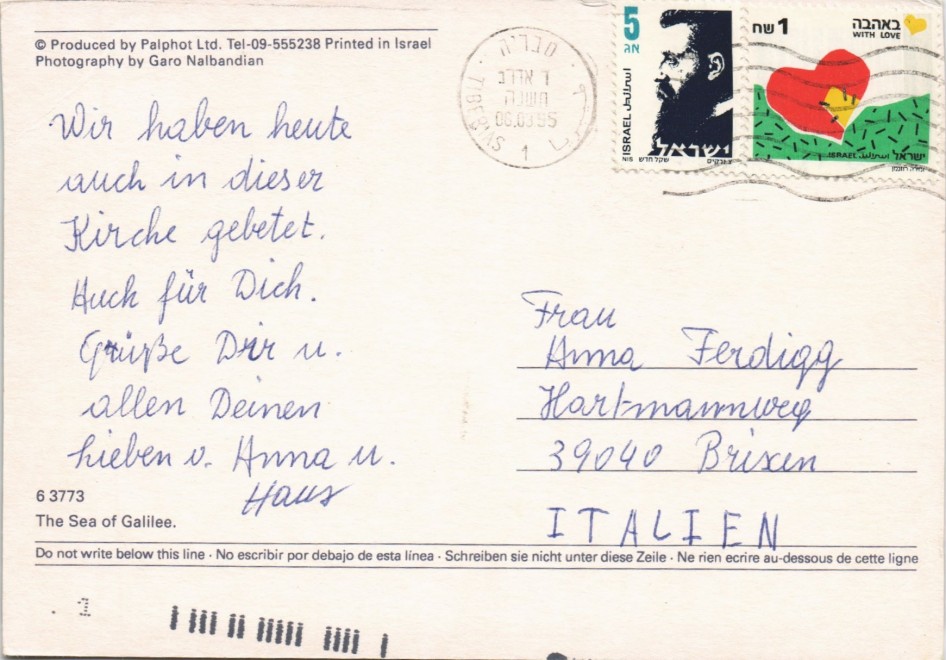 © Produced by Palphot Ltd. Tel-09-555238 Printed in Israel
Photography by Garo Nalbandian
Wir haben heute
auch in dieser
Kirche gebetet.
Auch für Dich.
Grüße Dir u.
allen Deinen
lieben v. Anna u.
Hans
6 3773
The Sea of Galilee.
טבריה
תשנה
06.03.95
TIBERIAS
1
5
אג
ISRAEL
ישראל
NIS
שקל חדש
1 שח
באהבה
WITH LOVE
ISRAEL
ישראל
Frau
Anna Ferdigg
Hartmannweg
39040 Brixen
ITALIEN
Do not write below this line · No escribir por debajo de esta línea · Schreiben sie nicht unter diese Zeile · Ne rien ecrire au-dessous de cette ligne
1